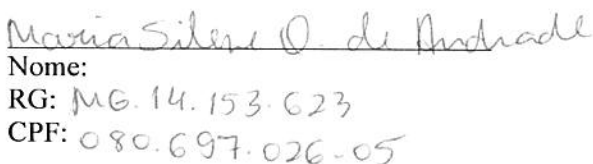 Maria Silene O. de Andrade
Nome:
RG: MG.14.153.623
CPF: 080.697.026-05